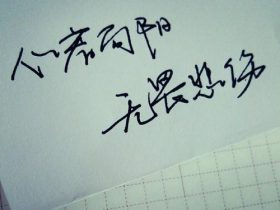 心若向阳
无畏悲伤